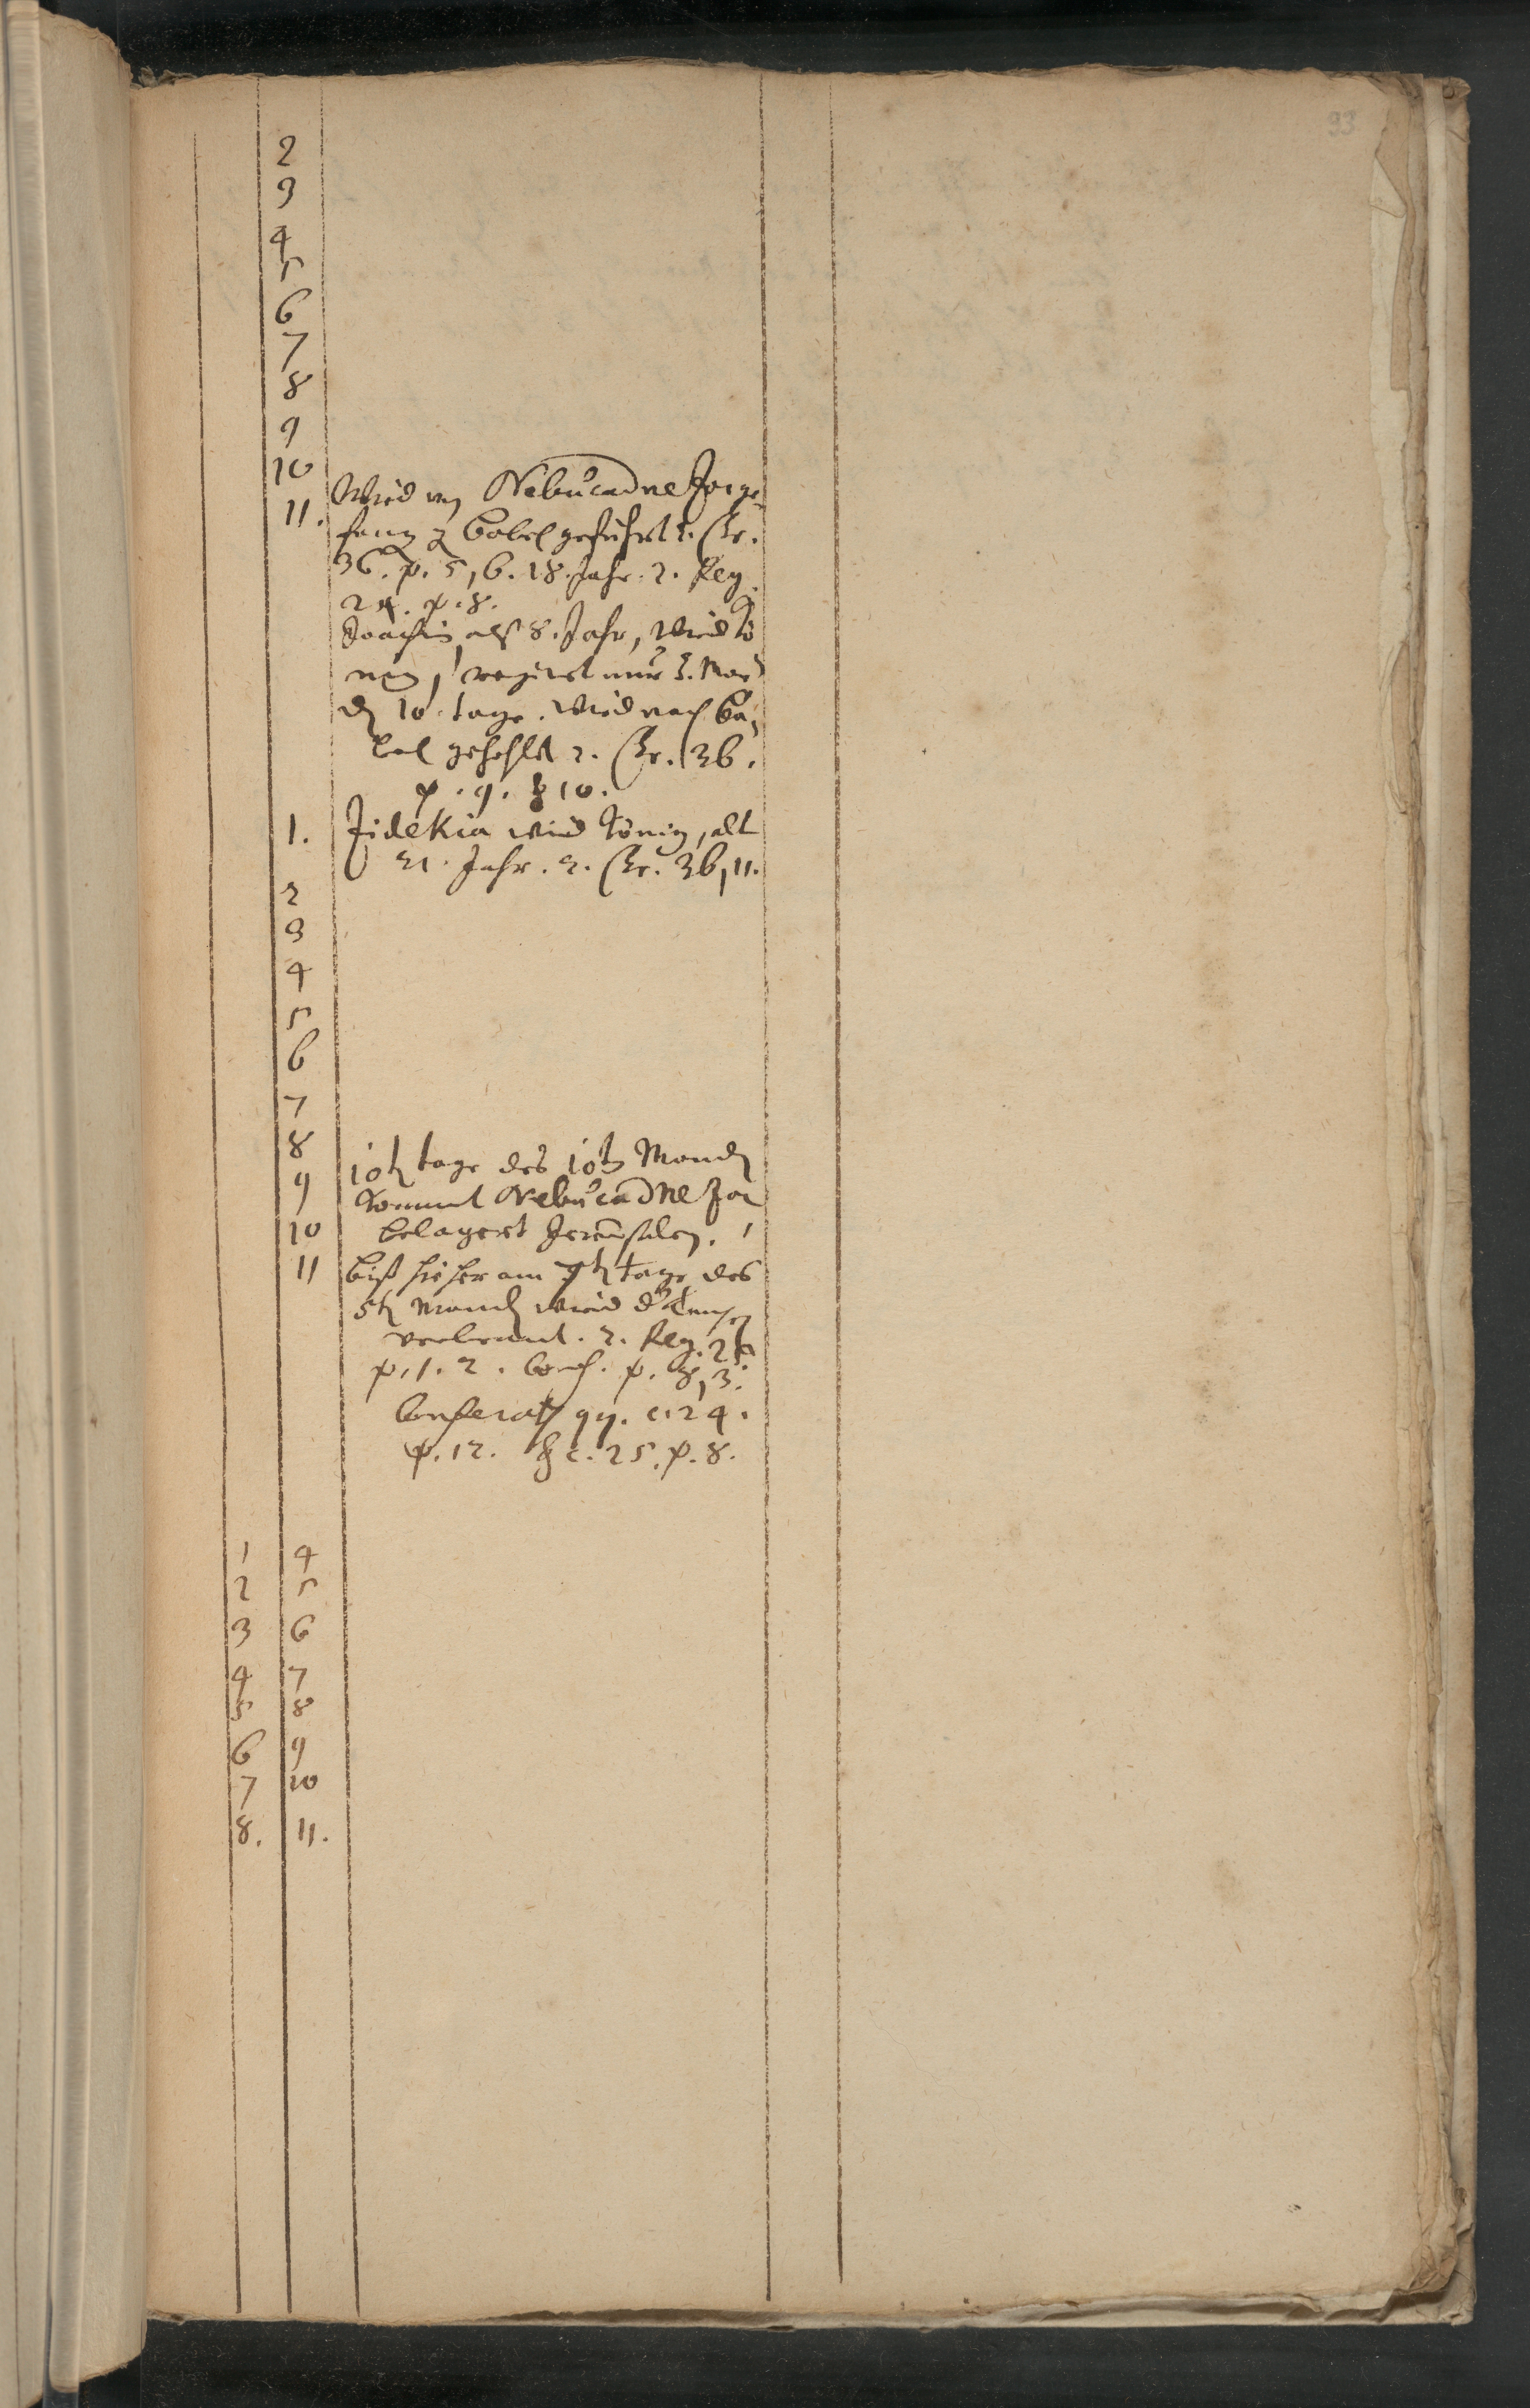 93
2
3
4
5
6
7
8
9
10
11. Wird von NebucadneZar ge-
fang. zu Babel geführt 2. Chr.
36. v. 5, 6. 18. Jahr. 2. Reg.
24. v. 8.
Joachin alß 8. Jahr, wird Kö
nig, regiret nur 3. Mon
den 10 tage. Wird nach Ba-
bel gehohlet 2. Chr. 36.
v. 9. & 10.
1. Zidekia wird König, alt
21. Jahr. 2. Chr. 36, 11.
2
3
4
5
6
7
8
9 10ten tage des 10ten Monden
kommt NebucadneZar
10 belagert Jerusalem.
11 biß hieher am 7ten tage des
5ten Monden wird der Tempel
verbrannt. 2. Reg. 25
v. 1. 2. v. 8, 3.
Conferatur c. 24.
v. 12. & c. 25. v. 8.
1 4
2 5
3 6
4 7
5 8
6 9
7 10
8. 11.